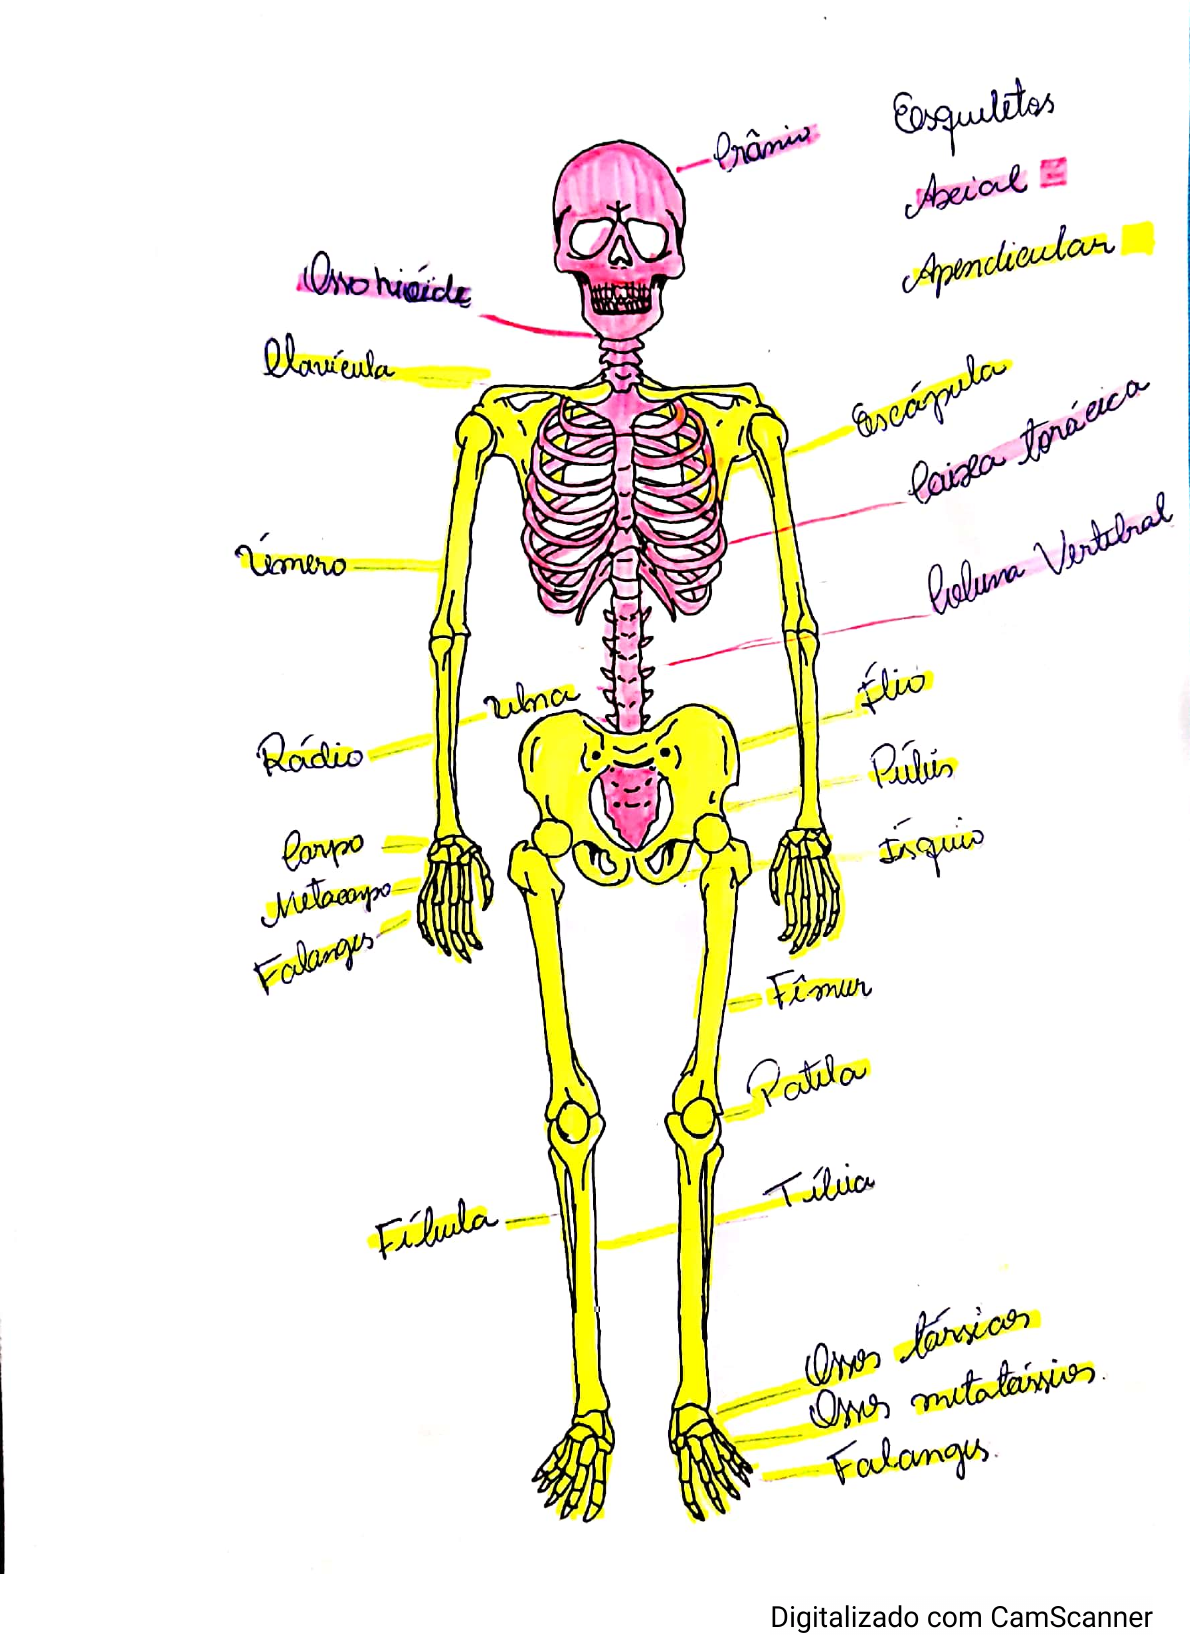 Esqueletos
Crânio
Axial
Apendicular
Osso hióide
Clavícula
Escápula
Caixa torácica
Úmero
Coluna Vertebral
Ílio
Ulna
Rádio
Púbis
Carpo
Ísquio
Metacarpo
Falanges
Fêmur
Patela
Tíbia
Fíbula
Ossos társicos
Ossos metatársicos.
Falanges.
Digitalizado com CamScanner